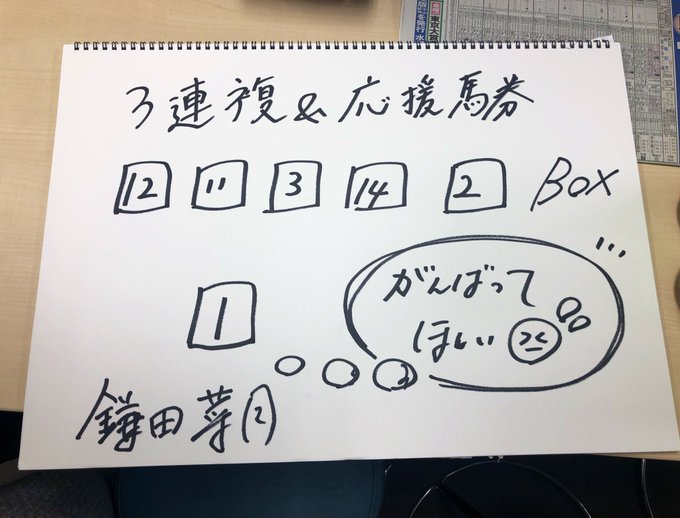 3連複&応援馬券
12 11 3 14 2 BOX
がんばって
ほしい
1
鎌田菜月